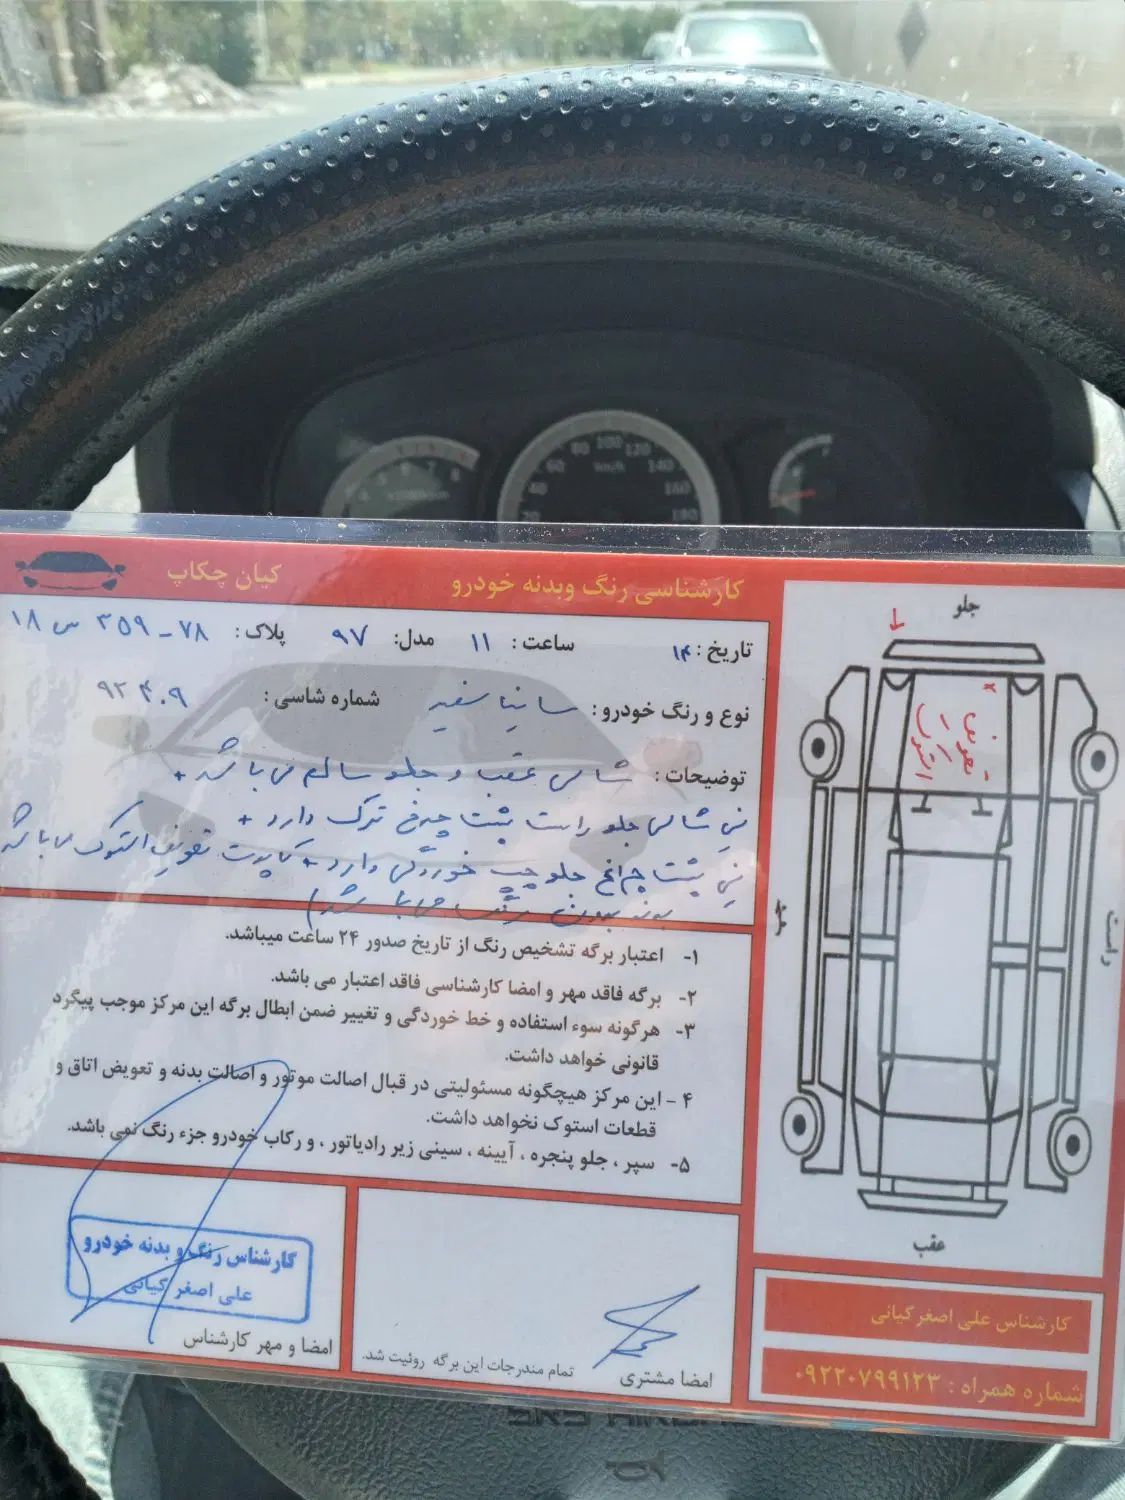 کارشناسی رنگ وبدنه خودرو
کیان چکاپ
تاریخ : ۱۴ ساعت : ۱۱ مدل: ۹۷ پلاک: ۷۸ - ۲۵۹ س ۱۸
نوع و رنگ خودرو : ساینا سفید شماره شاسی : ۹۲۴۰۹
توضیحات : شاسی عقب و جلو سالم می باشد +
نی شاسی جلو راست پشت چرخ ترک دارد +
نی پشت چراغ جلو چپ خوردگی دارد + کاپوت تعویض استوک می باشد
بدنه بدون رنگ می باشد
۱- اعتبار برگه تشخیص رنگ از تاریخ صدور ۲۴ ساعت میباشد.
۲- برگه فاقد مهر و امضا کارشناسی فاقد اعتبار می باشد.
۳- هرگونه سوء استفاده و خط خوردگی و تغییر ضمن ابطال برگه این مرکز موجب پیگرد
قانونی خواهد داشت.
۴ - این مرکز هیچگونه مسئولیتی در قبال اصالت موتور و اصالت بدنه و تعویض اتاق و
قطعات استوک نخواهد داشت.
۵- سپر ، جلو پنجره ، آیینه ، سینی زیر رادیاتور ، و رکاب خودرو جزء رنگ نمی باشد.
کارشناس رنگ و بدنه خودرو
علی اصغر کیانی
امضا و مهر کارشناس
تمام مندرجات این برگه روئیت شد.
امضا مشتری
جلو
تعویض
استوک
چپ
راست
عقب
کارشناس علی اصغر کیانی
شماره همراه : ۰۹۲۲۰۷۹۹۱۲۳